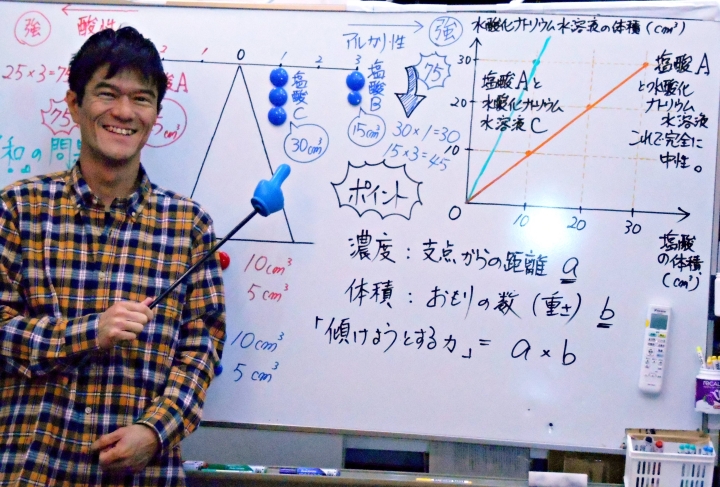 強
酸性
アルカリ性
強
2
1
0
1
2
3
25×3=75
酸A
75
塩酸C
塩酸B
30cm³
15cm³
75
30×1=30
15×3=45
和の問
ポイント
水酸化ナトリウム水溶液の体積(cm³)
30
20
10
0
10
20
30
塩酸Aと
水酸化ナトリウム
水溶液C
塩酸A
と水酸化
ナトリウム
水溶液
これで完全に
中性。
塩酸
の体積
(cm³)
10cm³
5cm³
10cm³
5cm³
濃度:支点からの距離 a
体積:おもりの数(重さ) b
「傾けようとする力」= a×b